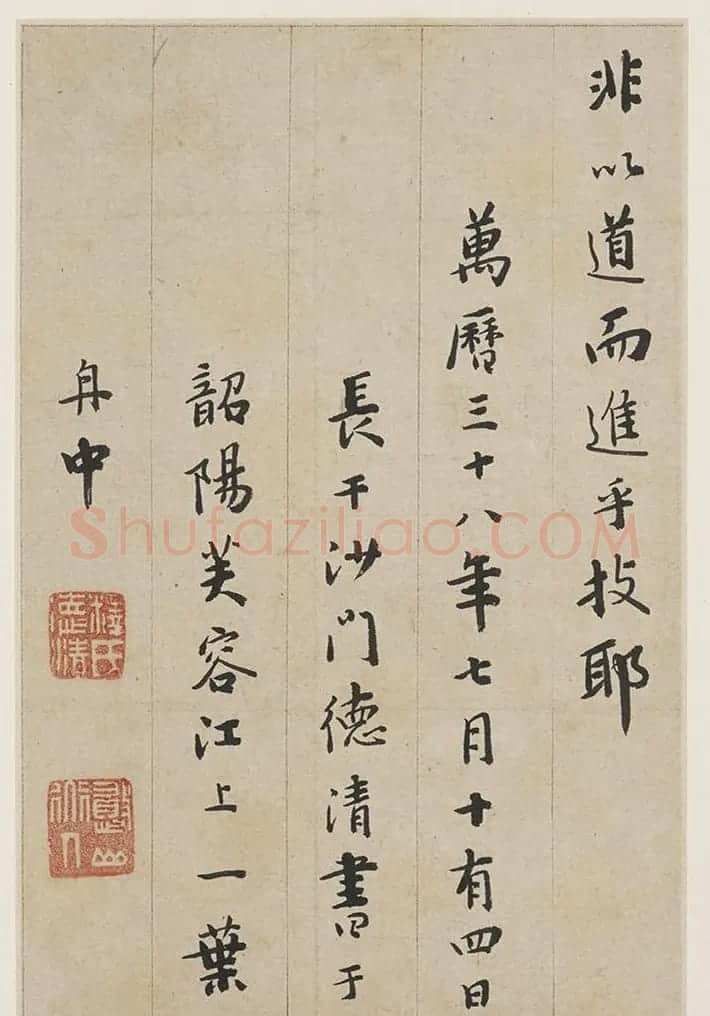 非以道而進乎技耶
萬曆三十八年七月十有四日
長干沙門德清書于
韶陽芙容江上一葉
舟中
釋氏德清
憨山
Shufaziliao.COM